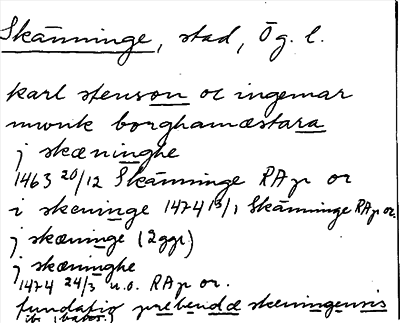 Skänninge, stad, Ög. l.
karl stenson oc ingemar
mwnk borghamæstara
j skæninghe
1463 20/12 Skänninge RAp or
i skeninge 1474 13/1 Skänninge RAp or.
j skæninge (2 ggr)
j skæninghe
1474 24/3 u.o. RAp or.
fundatio prebendæ skeningensis